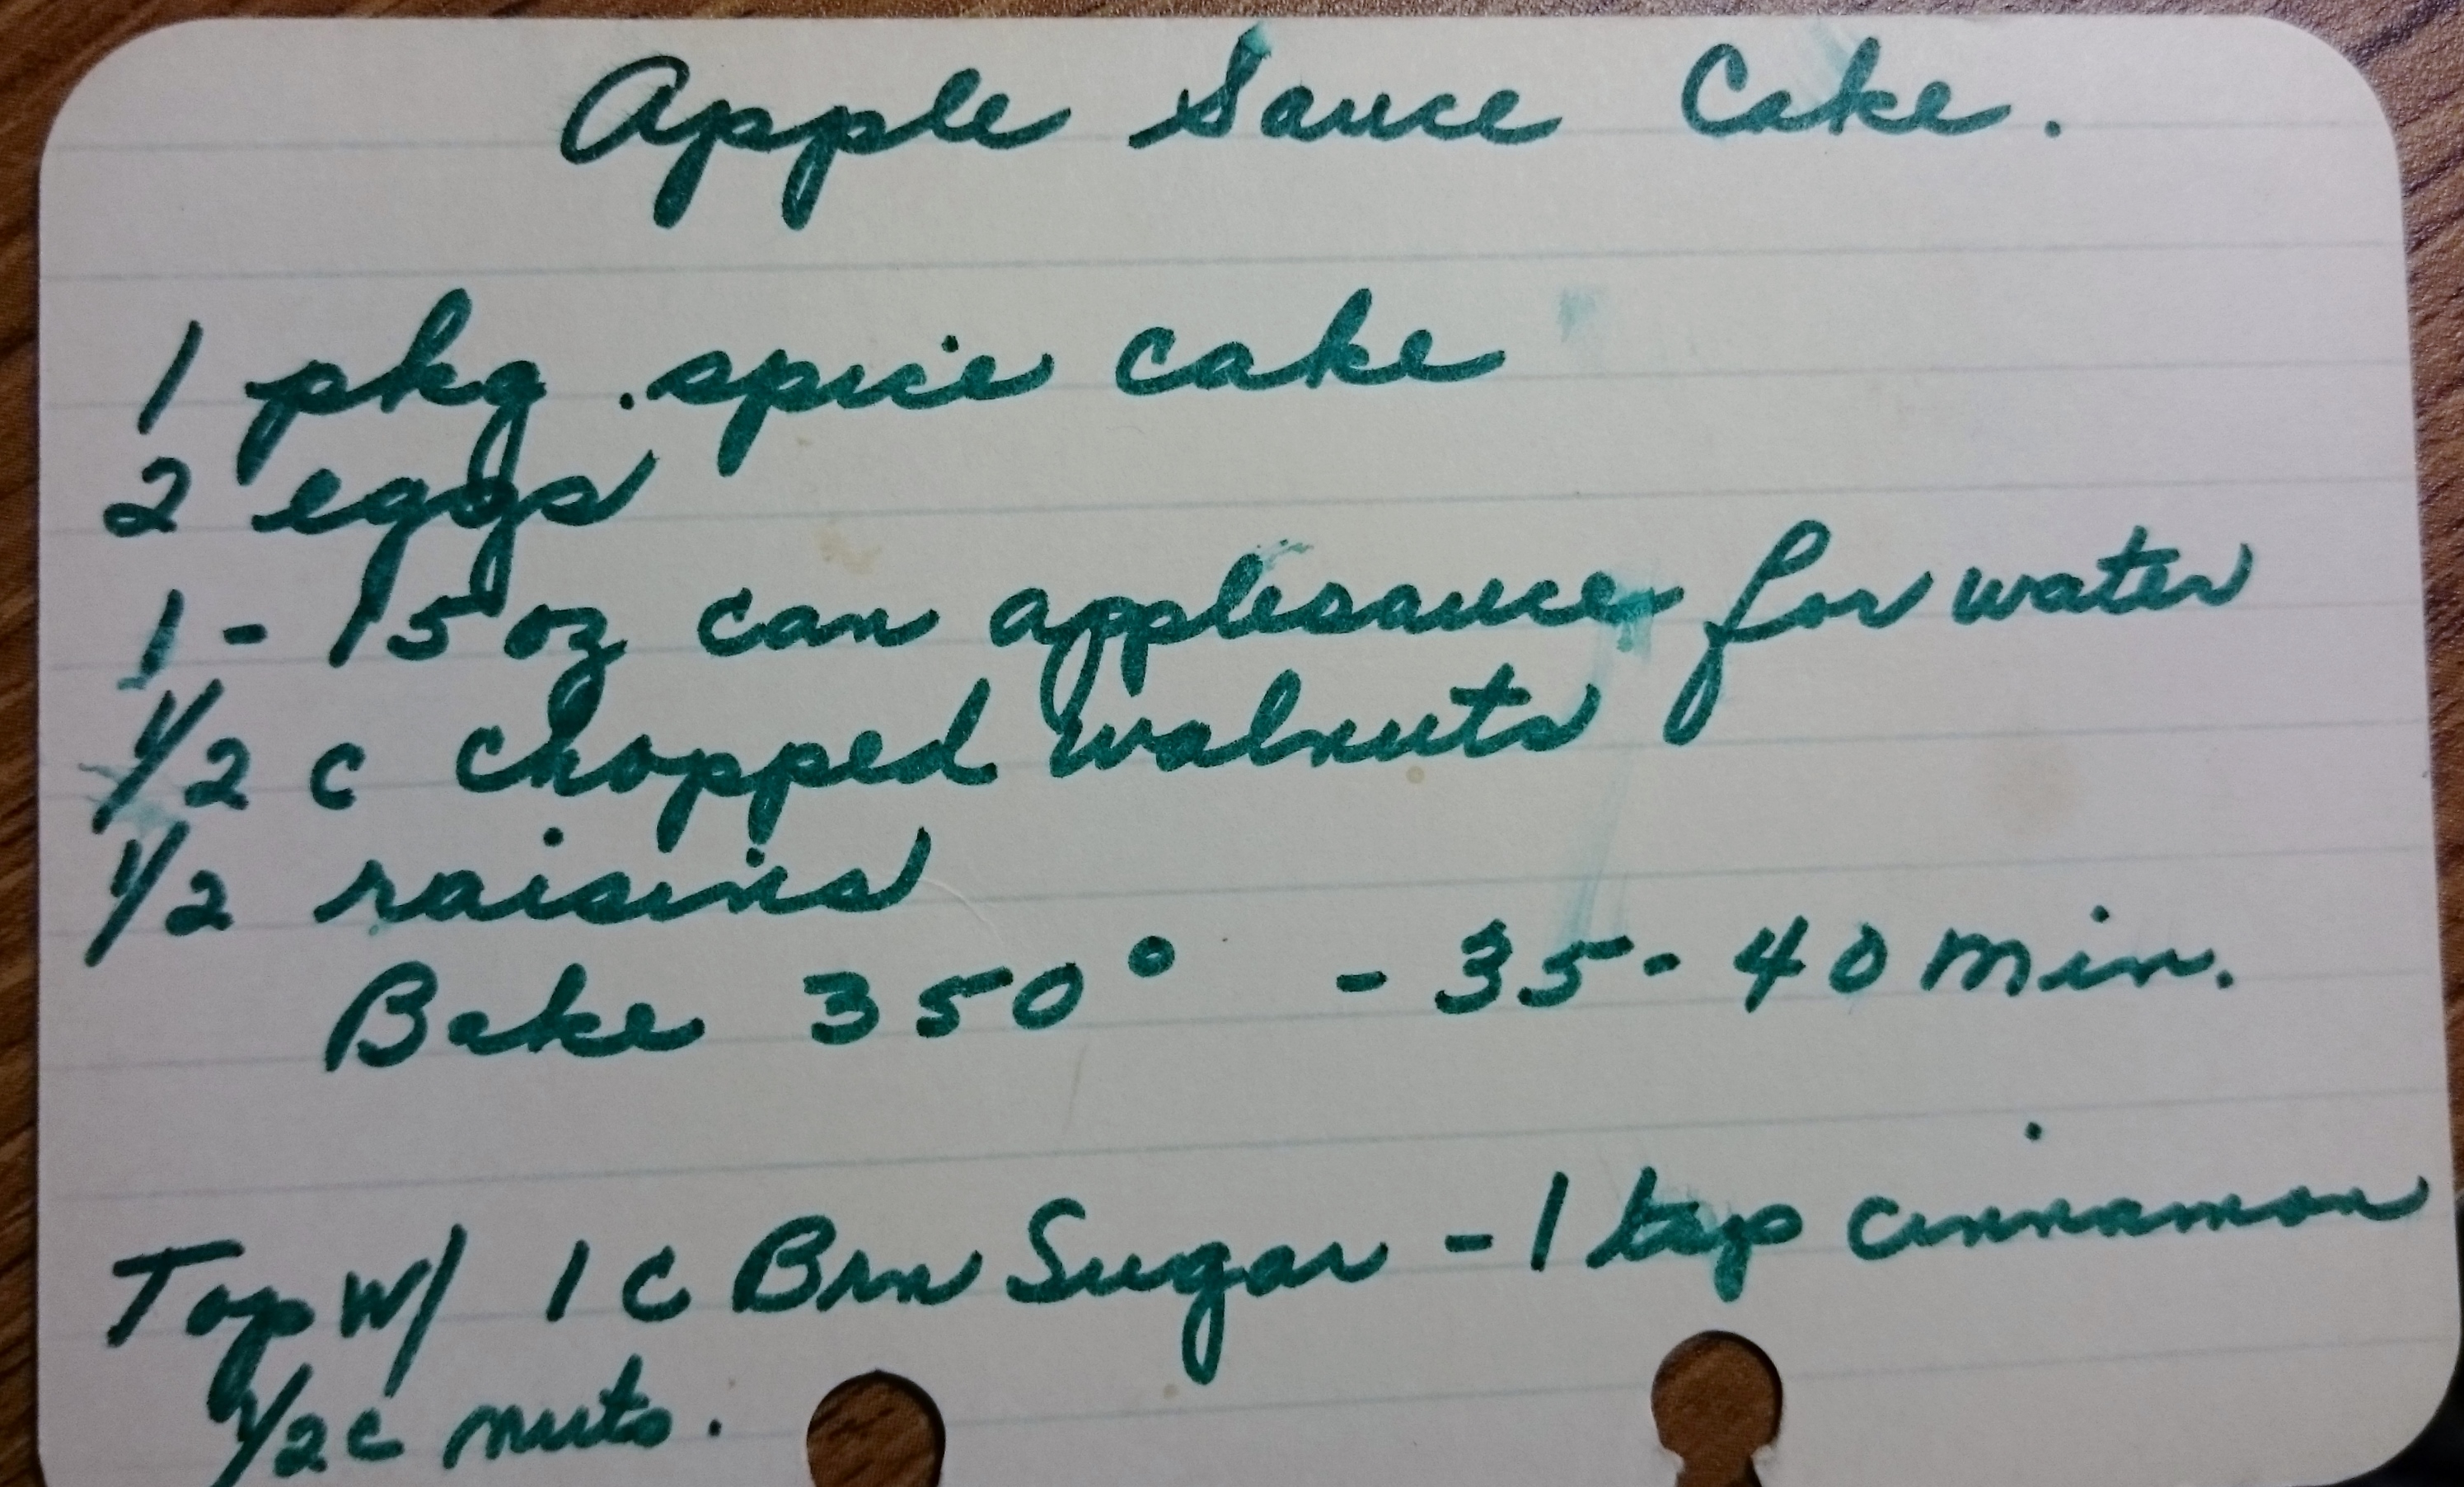 Apple Sauce Cake.
1 pkg. spice cake
2 eggs
1 - 15 oz can applesauce for water
1/2 c chopped walnuts
1/2 raisins
Bake 350° - 35 - 40 min.
Top w/ 1 c Brn Sugar - 1 tsp cinnamon
1/2 c nuts.